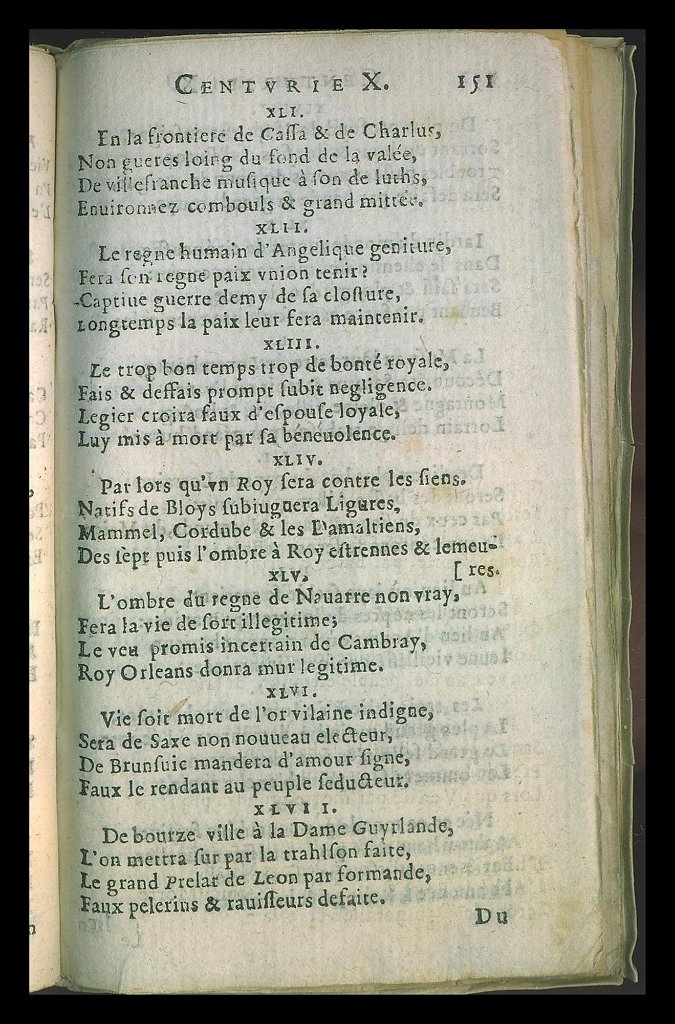 CENTVRIE X. 151
XLI.
En la frontiere de Caſſa & de Charlus,
Non gueres loing du fond de la valée,
De villefranche muſique à ſon de luths,
Enuironnez combouls & grand mittee.
XLII.
Le regne humain d'Angelique geniture,
Fera ſon regne paix vnion tenir?
Captiue guerre demy de ſa cloſture,
Longtemps la paix leur fera maintenir.
XLIII.
Le trop bon temps trop de bonté royale,
Fais & deffais prompt ſubit negligence.
Legier croira faux d'eſpouſe loyale,
Luy mis à mort par ſa beneuolence.
XLIV.
Par lors qu'vn Roy ſera contre les ſiens.
Natifs de Bloys ſubiuguera Ligures,
Mammel, Cordube & les Damaltiens,
Des ſept puis l'ombre à Roy eſtrennes & lemeu-
[res.
XLV.
L'ombre du regne de Nauarre non vray,
Fera la vie de ſort illegitime;
Le veu promis incertain de Cambray,
Roy Orleans donra mur legitime.
XLVI.
Vie ſoit mort de l'or vilaine indigne,
Sera de Saxe non nouueau electeur,
De Brunſuic mandera d'amour ſigne,
Faux le rendant au peuple ſeducteur.
XLVII.
De bourze ville à la Dame Guyrlande,
L'on mettra ſur par la trahlſon faite,
Le grand Prelat de Leon par formande,
Faux pelerins & rauiſſeurs defaite.
Du